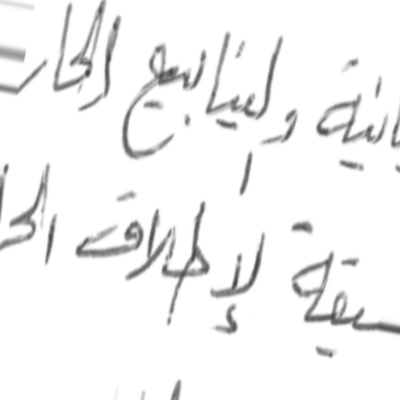 انية والينابيع الحار
سقة لإطلاق الحا